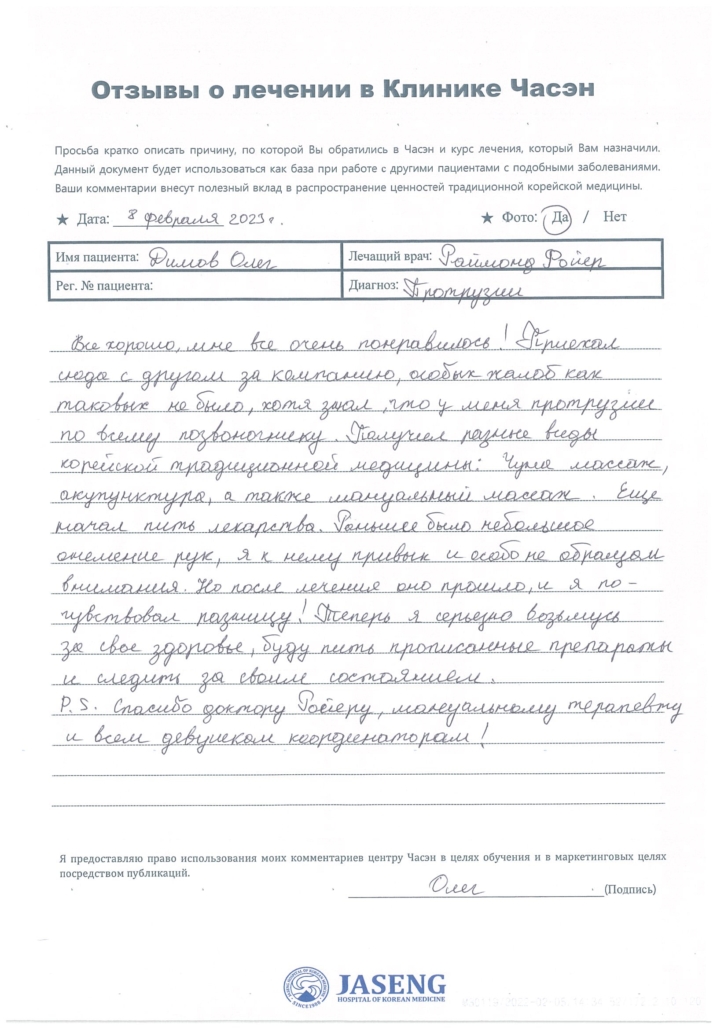 Отзывы о лечении в Клинике Часэн
Просьба кратко описать причину, по которой Вы обратились в Часэн и курс лечения, который Вам назначили.
Данный документ будет использоваться как база при работе с другими пациентами с подобными заболеваниями.
Ваши комментарии внесут полезный вклад в распространение ценностей традиционной корейской медицины.
★ Дата: 8 февраля 2023 г. ★ Фото: Да / Нет
Имя пациента: Димов Олег Лечащий врач: Раймонд Ройер
Рег. № пациента: Диагноз: Протрузии
Все хорошо, мне все очень понравилось! Приехал
сюда с другом за компанию, особых жалоб как
таковых не было, хотя знал, что у меня протрузии
по всему позвоночнику. Получил разные виды
корейской традиционной медицины: Чуна массаж,
акупунктура, а также мануальный массаж. Еще
начал пить лекарства. Раньше было небольшое
онемение рук, я к нему привык и особо не обращал
внимания. Но после лечения оно прошло, и я по-
чувствовал разницу! Теперь я серьезно возьмусь
за свое здоровье, буду пить прописанные препараты
и следить за своим состоянием.
P.S. Спасибо доктору Ройеру, мануальному терапевту
и всем девушкам координаторам!
Я предоставляю право использования моих комментариев центру Часэн в целях обучения и в маркетинговых целях
посредством публикаций.
Олег (Подпись)
JASENG
HOSPITAL OF KOREAN MEDICINE
SINCE 1988